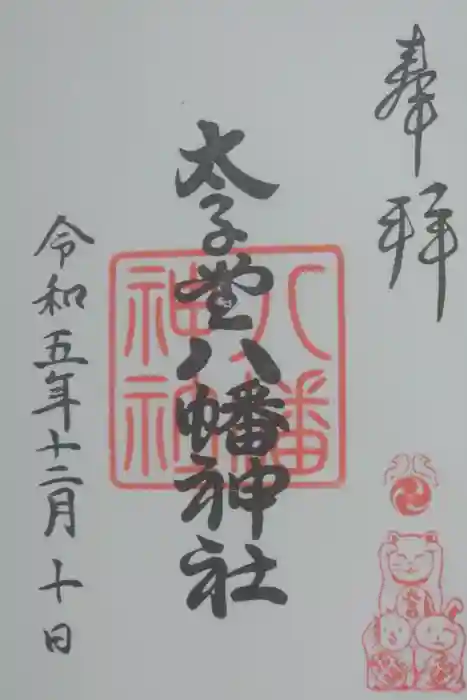 奉拝
太子堂八幡神社
八幡
神社
令和五年十二月十日